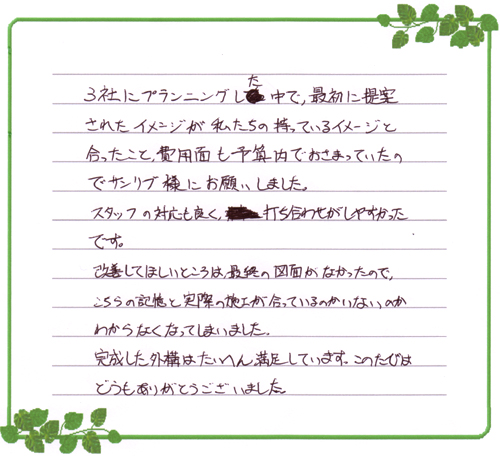 3社にプランニングした中で,最初に提案
されたイメージが私たちの持っているイメージと
合ったこと,費用面も予算内でおさまっていたの
でサンリブ様にお願いしました。
スタッフの対応も良く,打ち合わせがしやすかった
です。
改善してほしいところは,最終の図面がなかったので,
こちらの記憶と実際の施工が合っているのかいないのか
わからなくなってしまいました.
完成した外構はたいへん満足しています。このたびは
どうもありがとうございました。